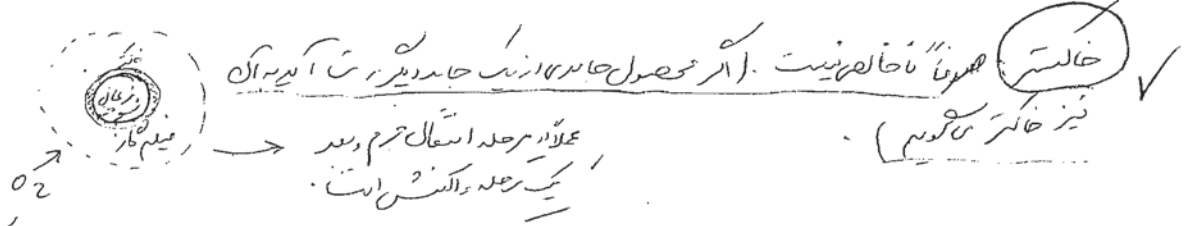 خاکستر صرفاً ناخالصی نیست. (اگر محصول جامدی از یک جامد دیگر بدست آید به آن
نیز خاکستر می‌گوییم).
عملاً دو مرحله انتقال جرم و بعد
یک مرحله واکنش است.
خاکستر
زغال
فیلم گاز
O2